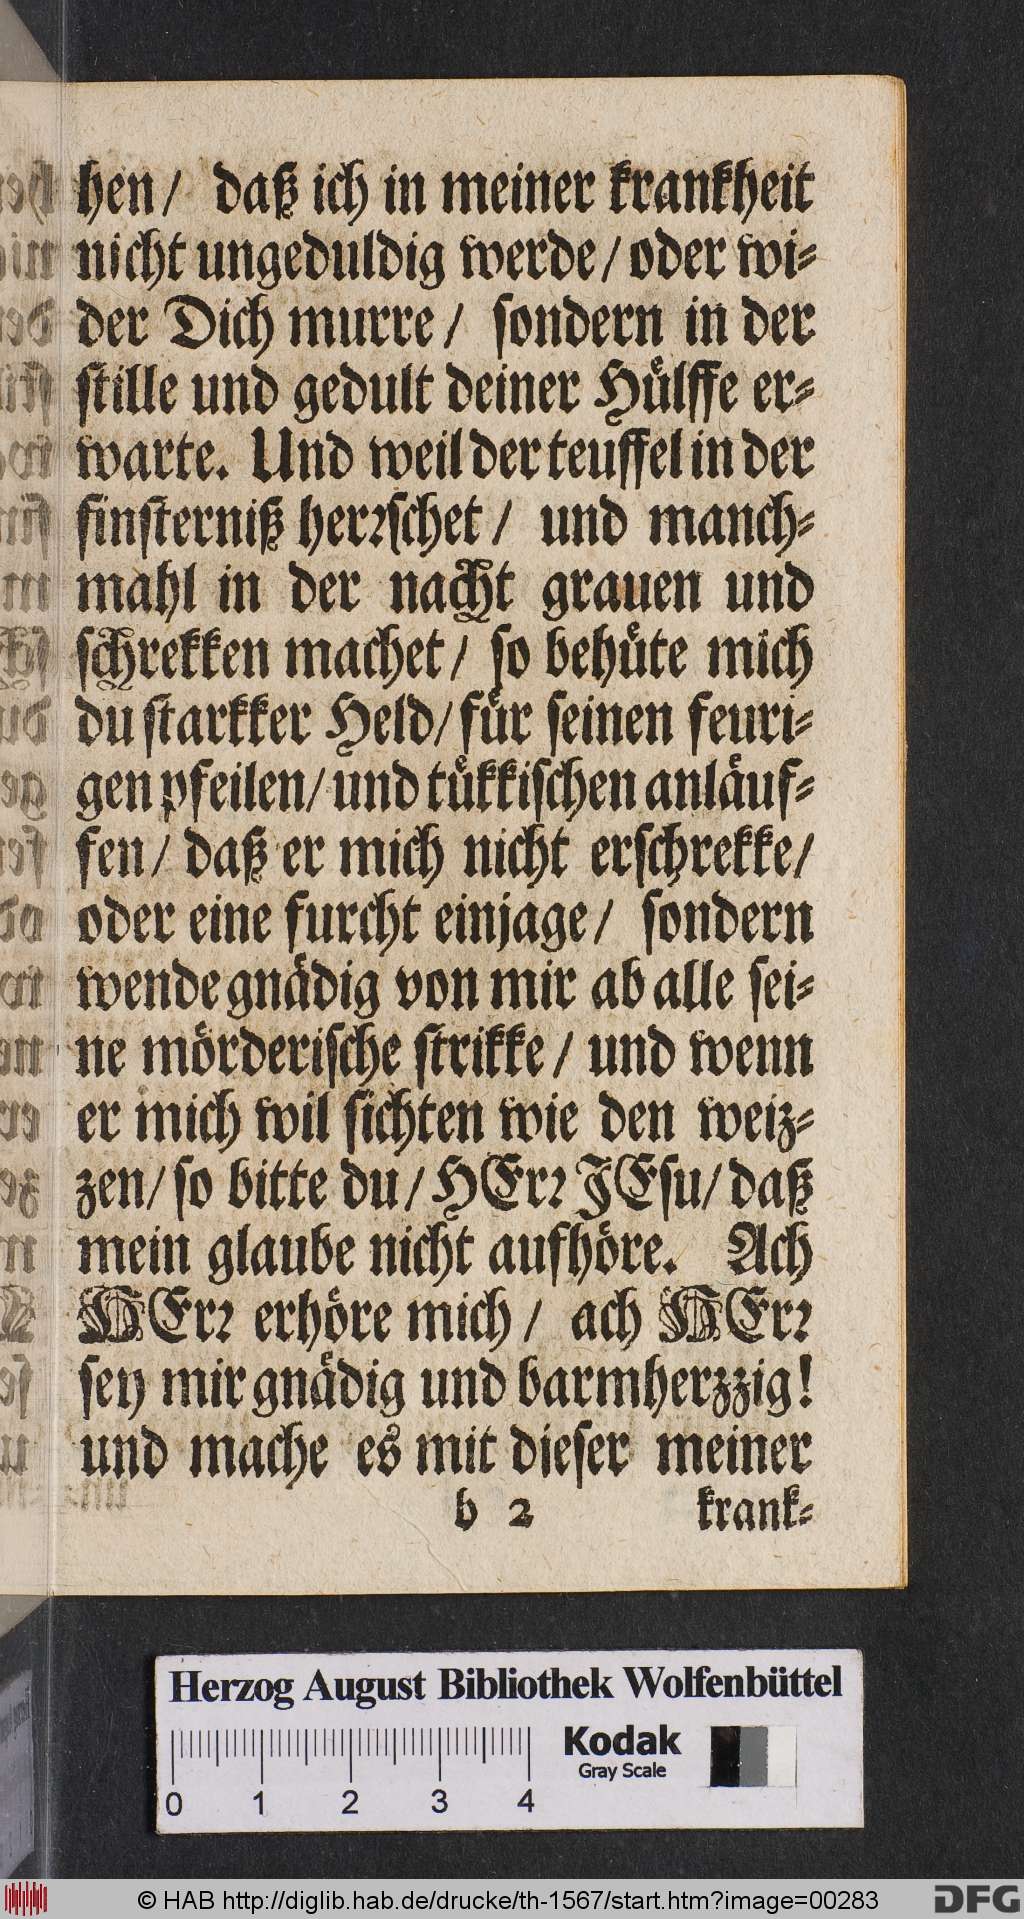 hen/ daß ich in meiner krankheit
nicht ungeduldig werde/ oder wi-
der Dich murre/ sondern in der
stille und gedult deiner Hülffe er-
warte. Und weil der teuffel in der
finsterniß herrschet/ und manch-
mahl in der nacht grauen und
schrekken machet/ so behüte mich
du starkker Held/ für seinen feuri-
gen pfeilen/ und tükkischen anläuf-
fen/ daß er mich nicht erschrekke/
oder eine furcht einjage/ sondern
wende gnädig von mir ab alle sei-
ne mörderische strikke/ und wenn
er mich wil sichten wie den weiz-
zen/ so bitte du/ HErr JEsu/ daß
mein glaube nicht aufhöre. Ach
HErr erhöre mich/ ach HErr
sey mir gnädig und barmherzzig!
und mache es mit dieser meiner
b 2 krank-
Herzog August Bibliothek Wolfenbüttel
Kodak
Gray Scale
0 1 2 3 4
© HAB http://diglib.hab.de/drucke/th-1567/start.htm?image=00283
DFG